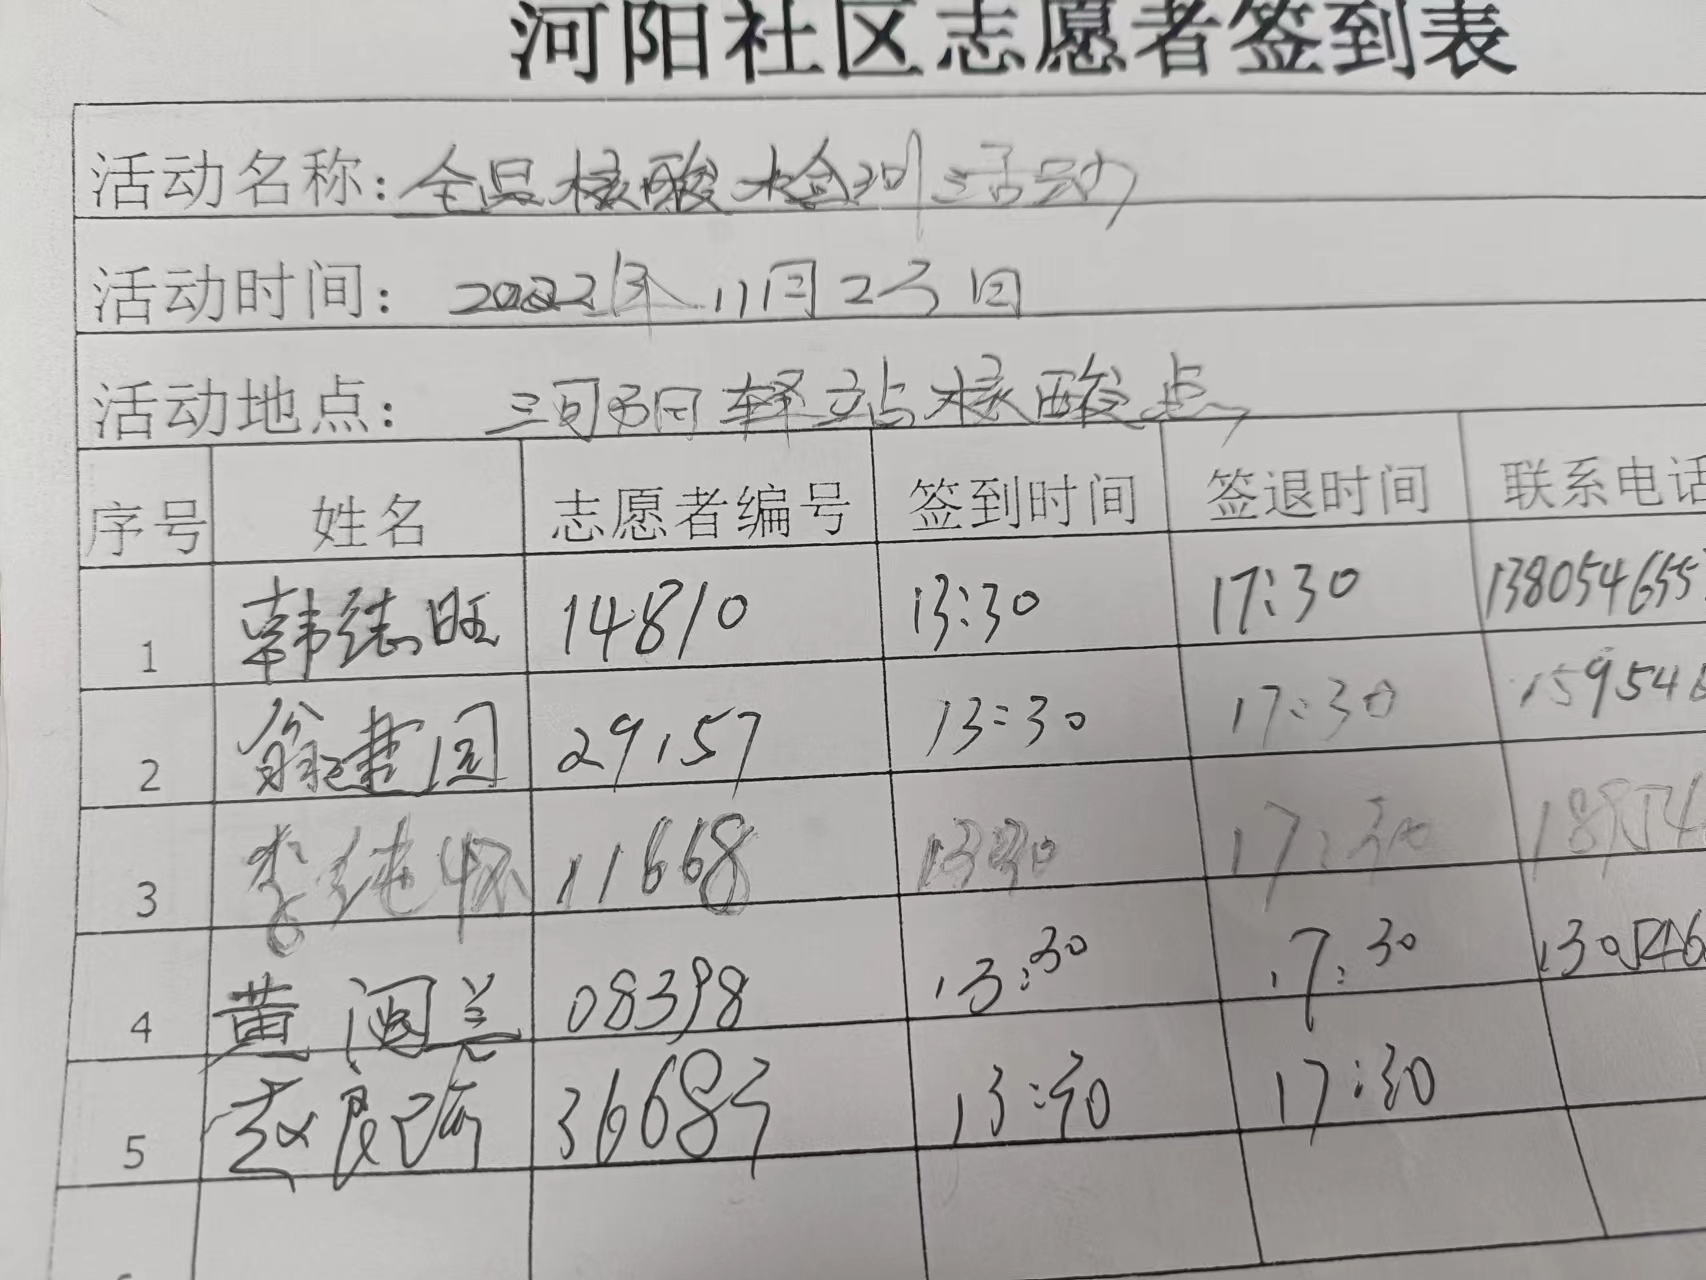 河阳社区志愿者签到表
活动名称：全员核酸检测活动
活动时间： 2022年11月23日
活动地点： 河阳驿站核酸点
序号 姓名 志愿者编号 签到时间 签退时间 联系电话
1 韩德旺 14810 13:30 17:30 1380546557
2 翁建国 29157 13:30 17:30 159546
3 李纯怀 11668 13:30 17:30 189546
4 黄阅兰 08398 13:30 17:30 1305246
5 赵 36683 13:30 17:30